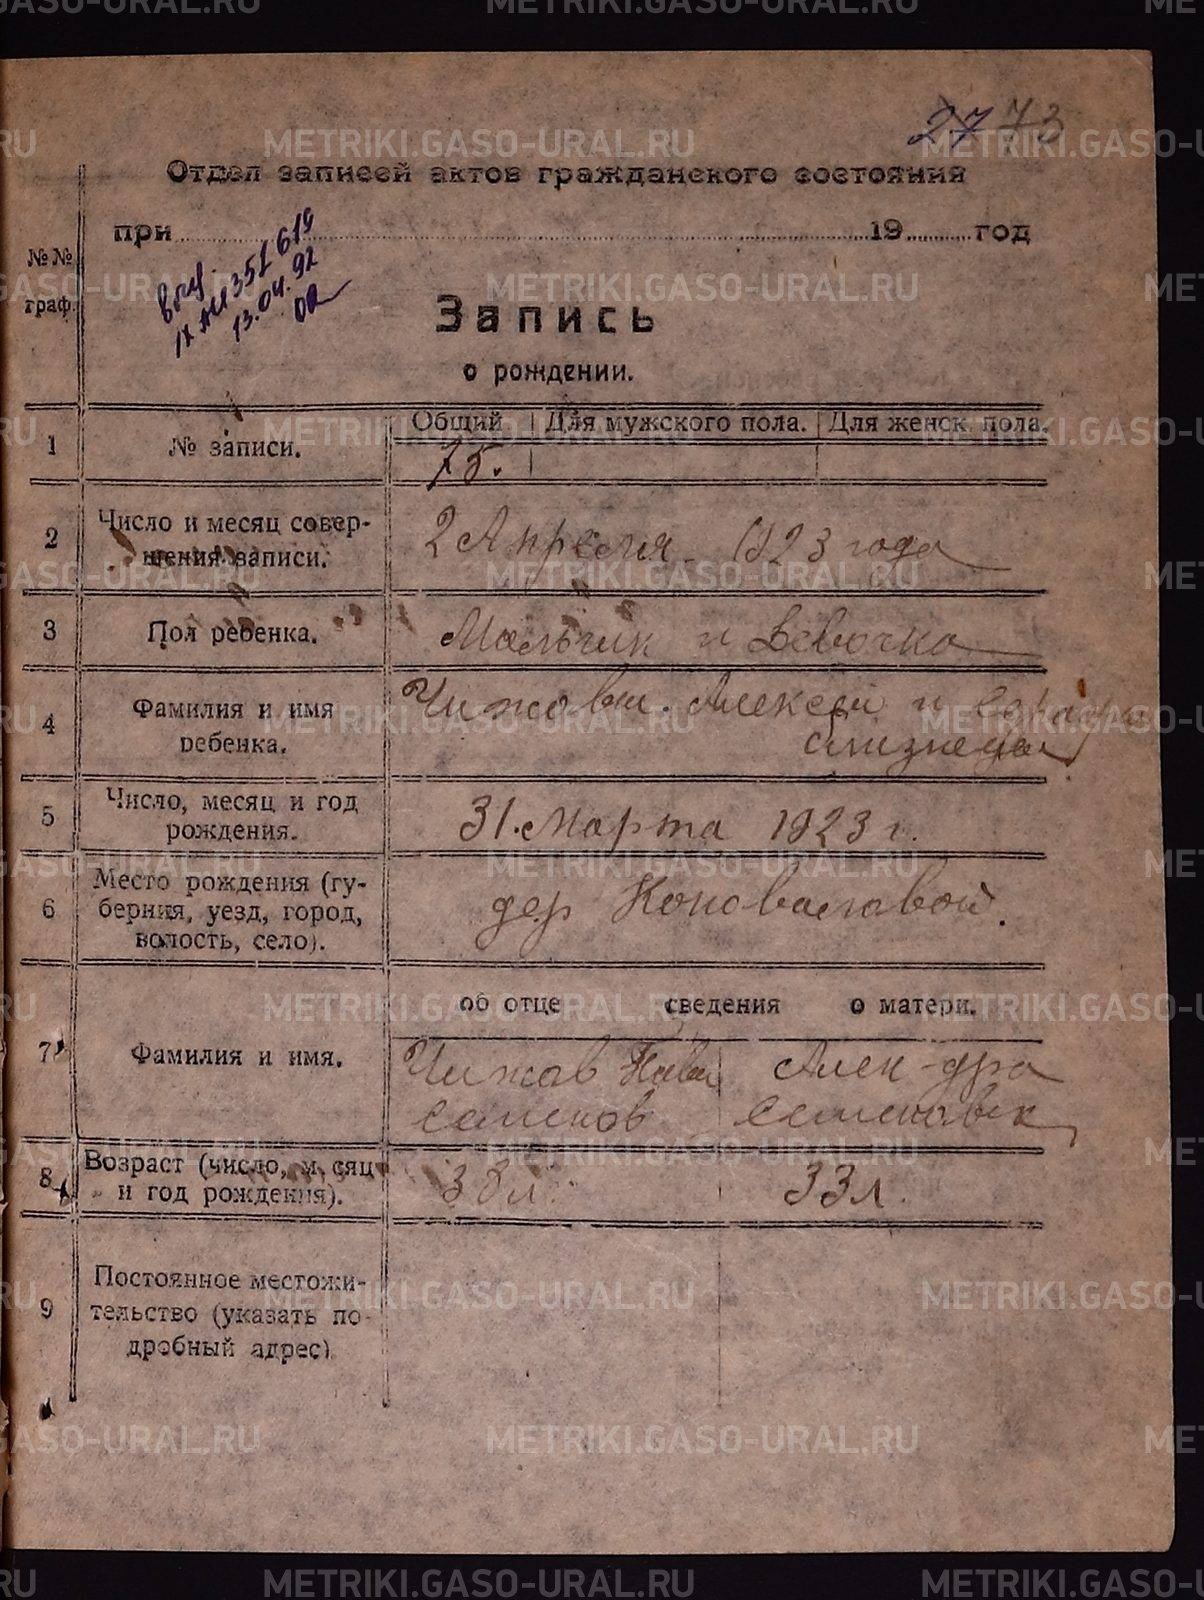 27 73
Отдел записей актов гражданского состояния
при 19 год
№ № граф.
выд.
IX АИ 351619
13.04.92
Запись
о рождении.
Общий Для мужского пола. Для женск. пола.
1 № записи. 75.
2 Число и месяц совер-
шения записи. 2 Апреля 1923 года
3 Пол ребенка. Мальчик и Девочка
4 Фамилия и имя Чижовы. Алексей и
ребенка. близнецы
5 Число, месяц и год
рождения. 31. Марта 1923 г.
6 Место рождения (гу-
берния, уезд, город, дер Коноваловой.
волость, село).
об отце сведения о матери.
7 Фамилия и имя. Чижов Алек-дра
Семенов
8 Возраст (число, м сяц
и год рождения). 38 л. 33 л.
9 Постоянное местожи-
тельство (указать по-
дробный адрес)
METRIKI.GASO-URAL.RU